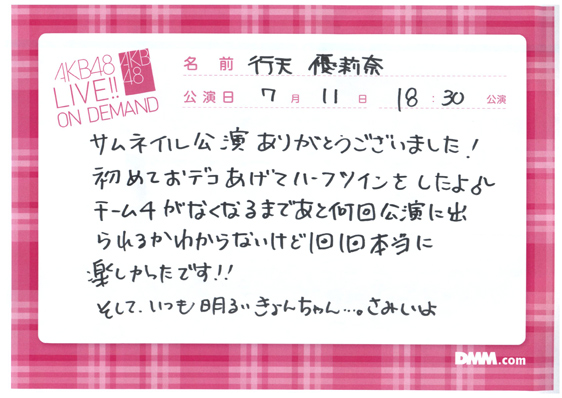 AKB48
LIVE!!
ON DEMAND
AKB
48
名前 行天 優莉奈
公演日 7月 11日 18:30 公演
サムネイル公演ありがとうございました!
初めておデコあげてハーフツインをしたよ♪
チーム4がなくなるまであと何回公演に出
られるかわからないけど1回1回本当に
楽しかったです!!
そして、いつも明るいきょんちゃん...。さみしいよ
DMM.com